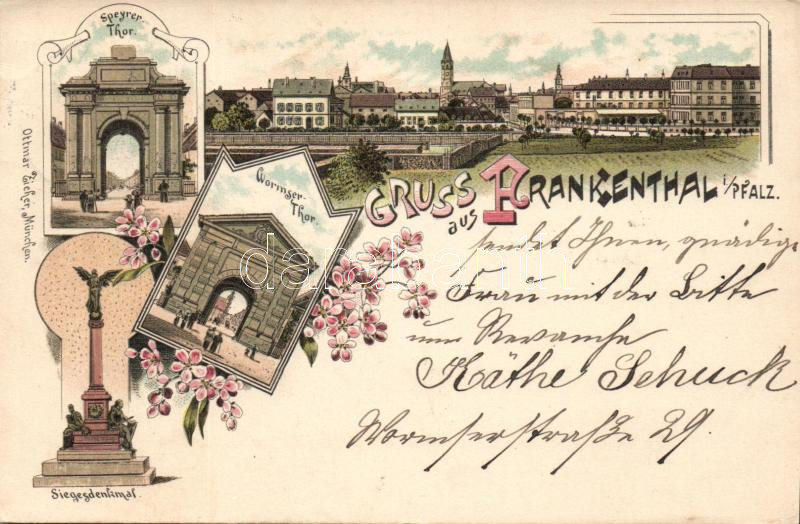 Speyrer-
Thor.
Ottmar Zieher, München.
Wormser-
Thor.
GRUSS
aus
FRANKENTHAL i/PFALZ.
Siegesdenkmal.
sendet Ihnen, gnädige
Frau mit der Bitte
um Revanche
Käthe Schuck
Wormserstraße 29.
darabanth.com